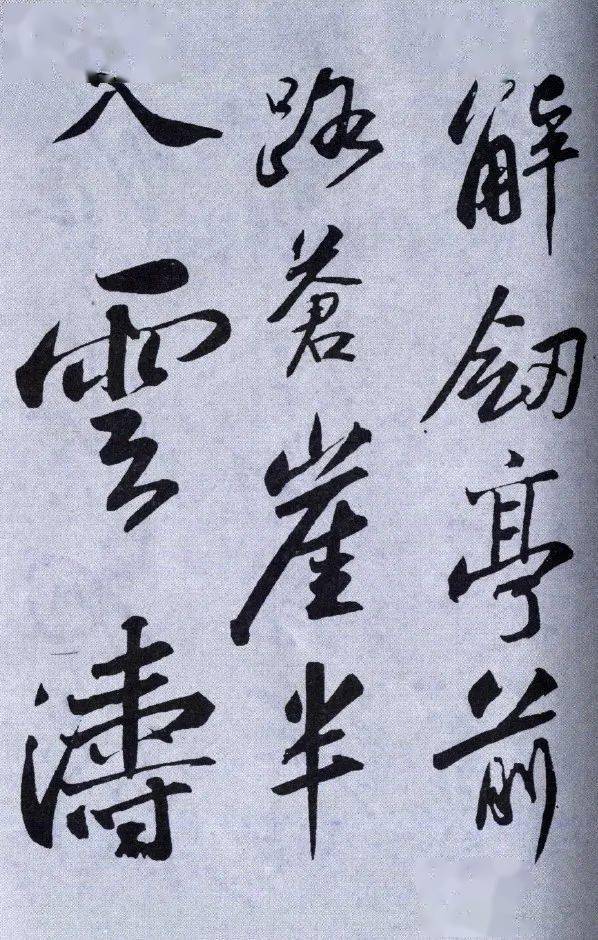 解劒亭前
路蒼崖半
入雲濤